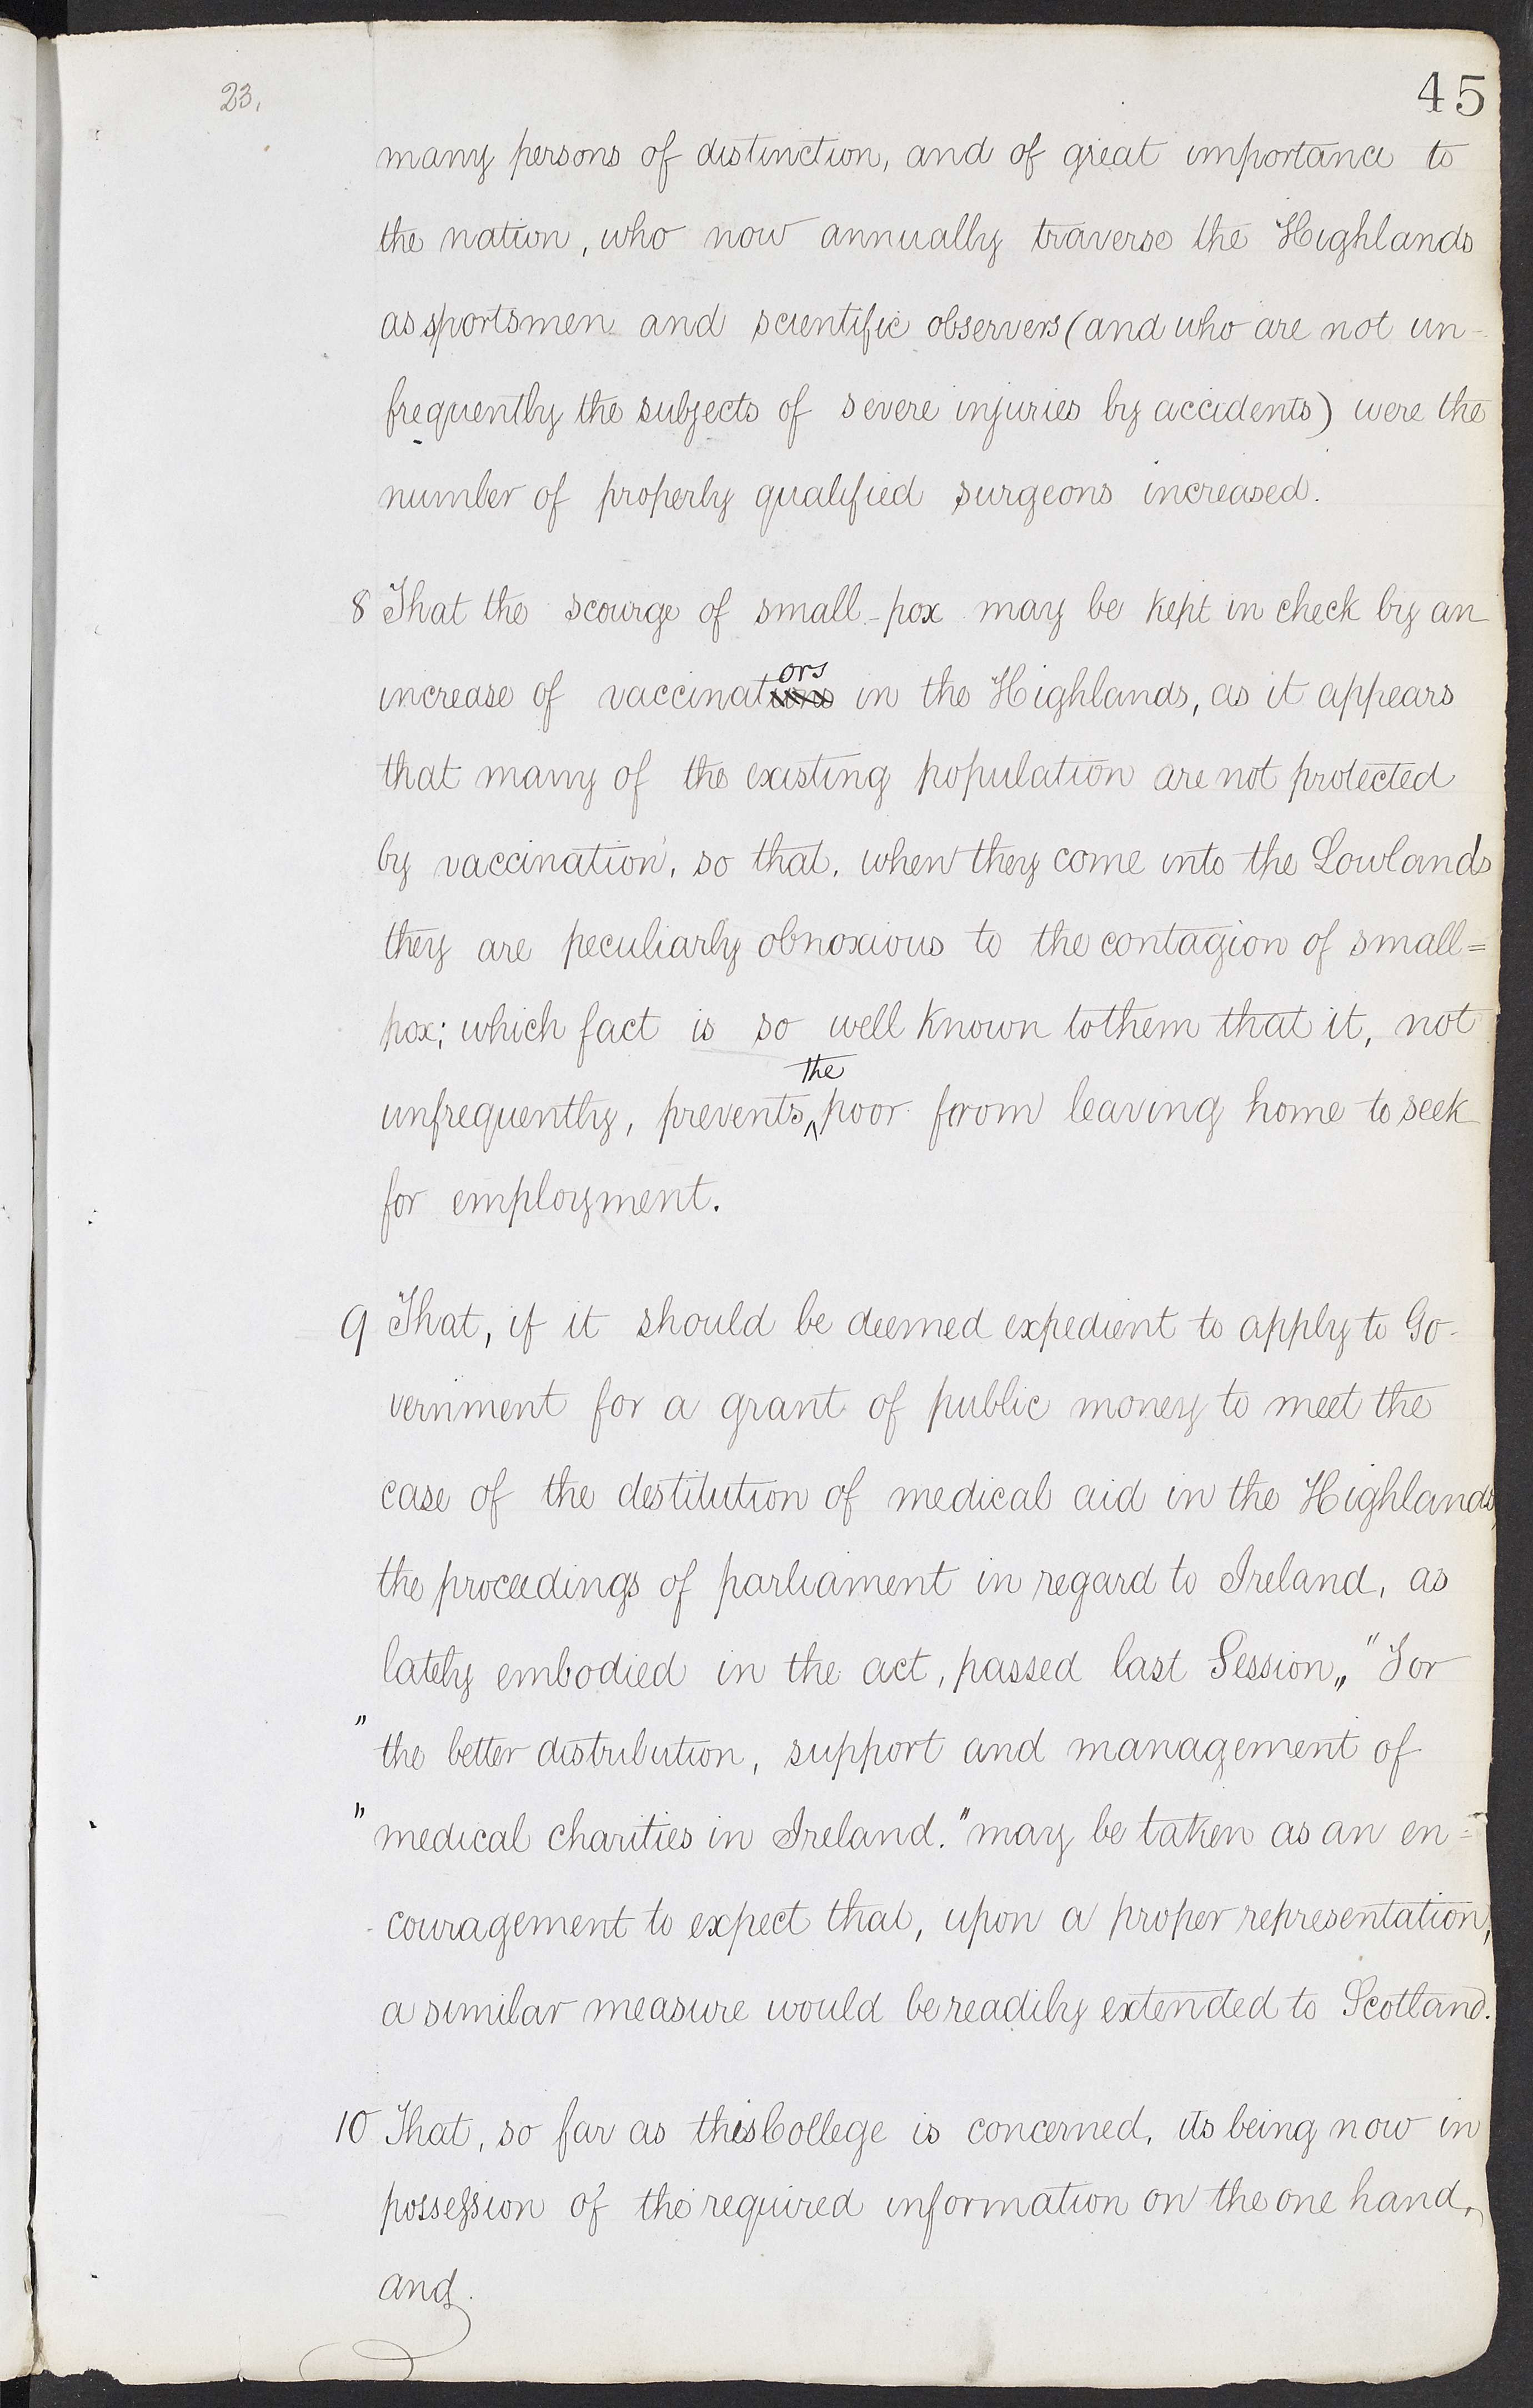 23.
45
many persons of distinction, and of great importance to
the nation, who now annually traverse the Highlands
as sportsmen and scientific observers (and who are not un-
frequently the subjects of severe injuries by accidents) were the
number of properly qualified surgeons increased.
8 That the scourge of small-pox may be kept in check by an
ors
increase of vaccinations in the Highlands, as it appears
that many of the existing population are not protected
by vaccination, so that, when they come into the Lowlands
they are peculiarly obnoxious to the contagion of small=
pox; which fact is so well known to them that it, not
the
unfrequently, prevents ^ poor from leaving home to seek
for employment.
9 That, if it should be deemed expedient to apply to Go-
vernment for a grant of public money to meet the
case of the destitution of medical aid in the Highlands,
the proceedings of parliament in regard to Ireland, as
lately embodied in the act, passed last Session, "For
" the better distribution, support and management of
" medical charities in Ireland." may be taken as an en=
-couragement to expect that, upon a proper representation,
a similar measure would be readily extended to Scotland.
10 That, so far as this College is concerned, its being now in
possession of the required information on the one hand,
and